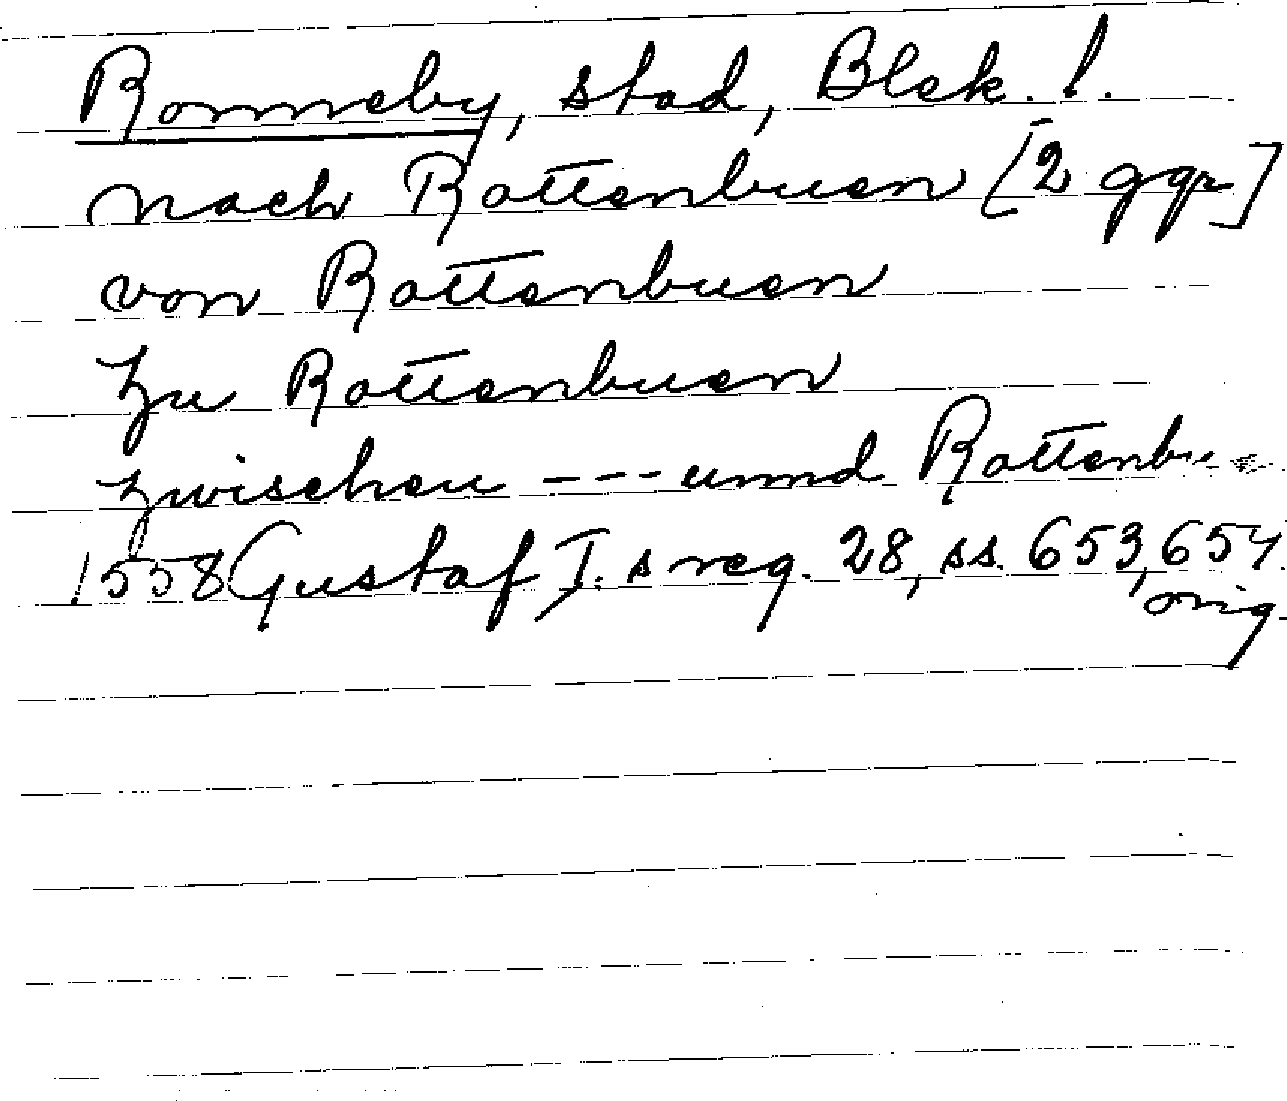 Ronneby, stad, Blek. l.
nach Rottenbuen [2 ggr]
von Rottenbuen
zu Rottenbuen
zwischen --- unnd Rottenbu
1558 Gustaf I:s reg. 28, ss. 653, 654.
orig.